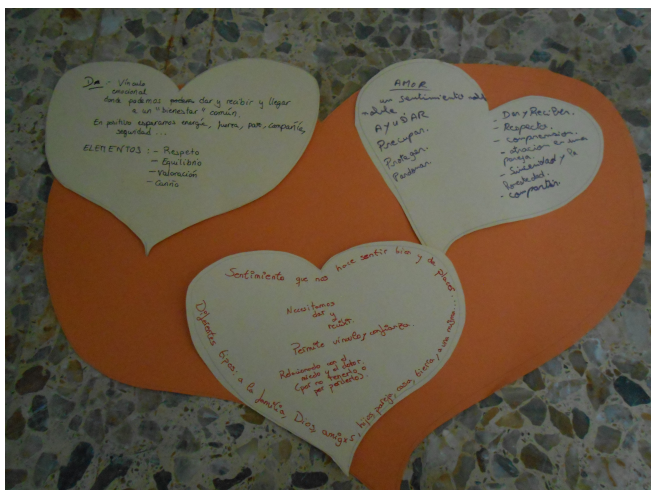 De :- Vínculo
emocional
donde podemos dar y recibir y llegar
a un "bienestar" común.
En positivo esperamos energía, fuerza, paz, compañía,
seguridad...
ELEMENTOS : - Respeto
- Equilibrio
- Valoración
- Cariño
AMOR
un sentimiento
AYUDAR
Precupar.
Proteger.
Perdonar.
- Dar y Recibir.
- Respecto.
- comprension.
- atracion en una
pareja.
- Sinceridad y la
honestidad.
- Compartir
Sentimiento que nos hace sentir bien y da placer...
Necesitamos
dar y
recibir.
Permite vínculo y confianza.
Relacionado con el
miedo y el dolor.
(por no tenerlo o
por perderlo).
Diferentes tipos: a la familia, Dios, amigxs, hijxs, pareja, casa, tierra, a una misma...